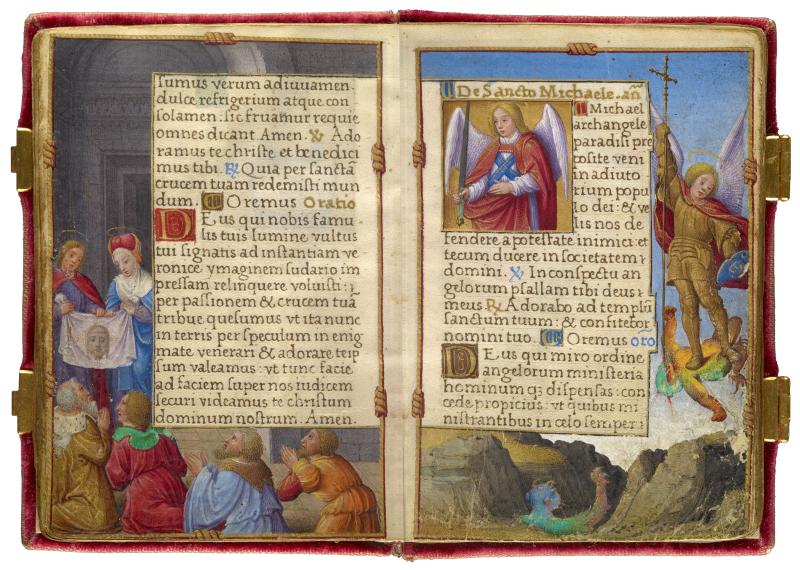 sumus verum adiuuamen
dulce refrigerium atque con
solamen. sic fruamur requie
omnes dicant. Amen. ℣ Ado
ramus te christe et benedici
mus tibi. ℟ Quia per sanctā
crucem tuam redemisti mun
dum. Oremus Oratio
DEus qui nobis famu
lis tuis lumine vultus
tui signatis ad instantiam ve
ronice ymaginem sudario im
pressam relinquere voluisti:
per passionem & crucem tuā
tribue quesumus vt ita nunc
in terris per speculum in enig
mate venerari & adorare teip
sum valeamus: vt tunc facie
ad faciem super nos iudicem
securi videamus te christum
dominum nostrum. Amen.
De Sancto Michaele. añ
Michael
archangele
paradisi pre
posite veni
in adiuto
rium popu
lo dei: & ve
lis nos de
fendere a potestate inimici et
tecum ducere in societatem
domini. ℣ In conspectu an
gelorum psallam tibi deus
meus ℟ Adorabo ad templū
sanctum tuum: & confitebor
nomini tuo. Oremus oro
DEus qui miro ordine
angelorum ministeria
hominum q3 dispensas: con
cede propicius: vt quibus mi
nistrantibus in celo semper